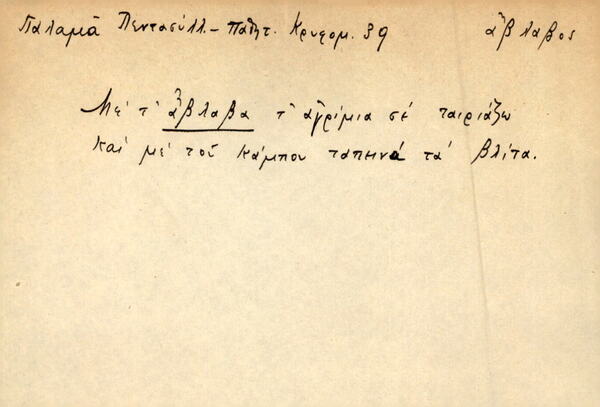 Παλαμᾶ Πεντασύλλ.- Παθητ. Κρυφομ. 39 ἄβλαβος
Μὲ τ' ἄβλαβα τ' ἀγρίμια σὲ ταιριάζω
καὶ μὲ τοῦ κάμπου ταπεινὰ τὰ βλίτα.